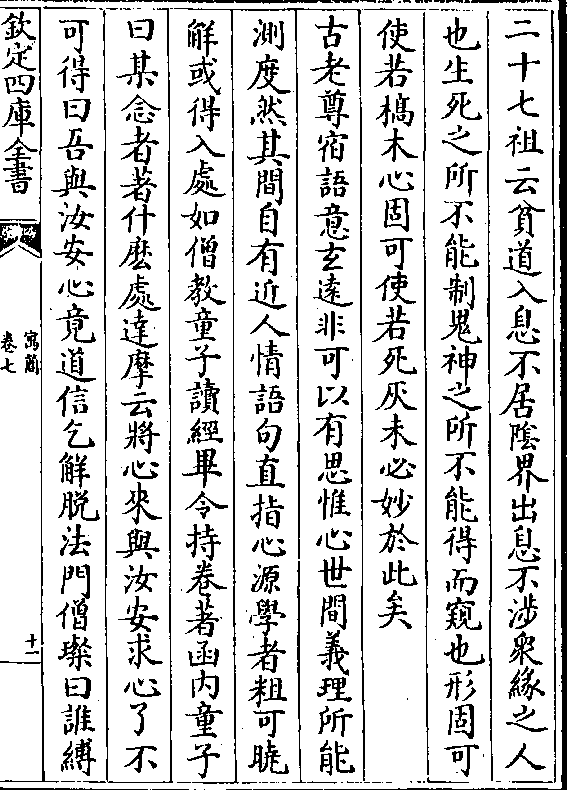 二十七祖云貧道入息不居陰界出息不涉衆緣之人
也生死之所不能制鬼神之所不能得而窺也形固可
使若槁木心固可使若死灰未必妙於此矣
古老尊宿語意玄遠非可以有思惟心世間義理所能
測度然其間自有近人情語句直指心源學者粗可曉
解或得入處如僧教童子讀經畢令持卷著函内童子
曰某念者著什麽處達摩云將心來與汝安求心了不
可得曰吾與汝安心竟道信乞解脱法門僧璨曰誰縛
欽定四庫全書
寓簡
卷七
十一